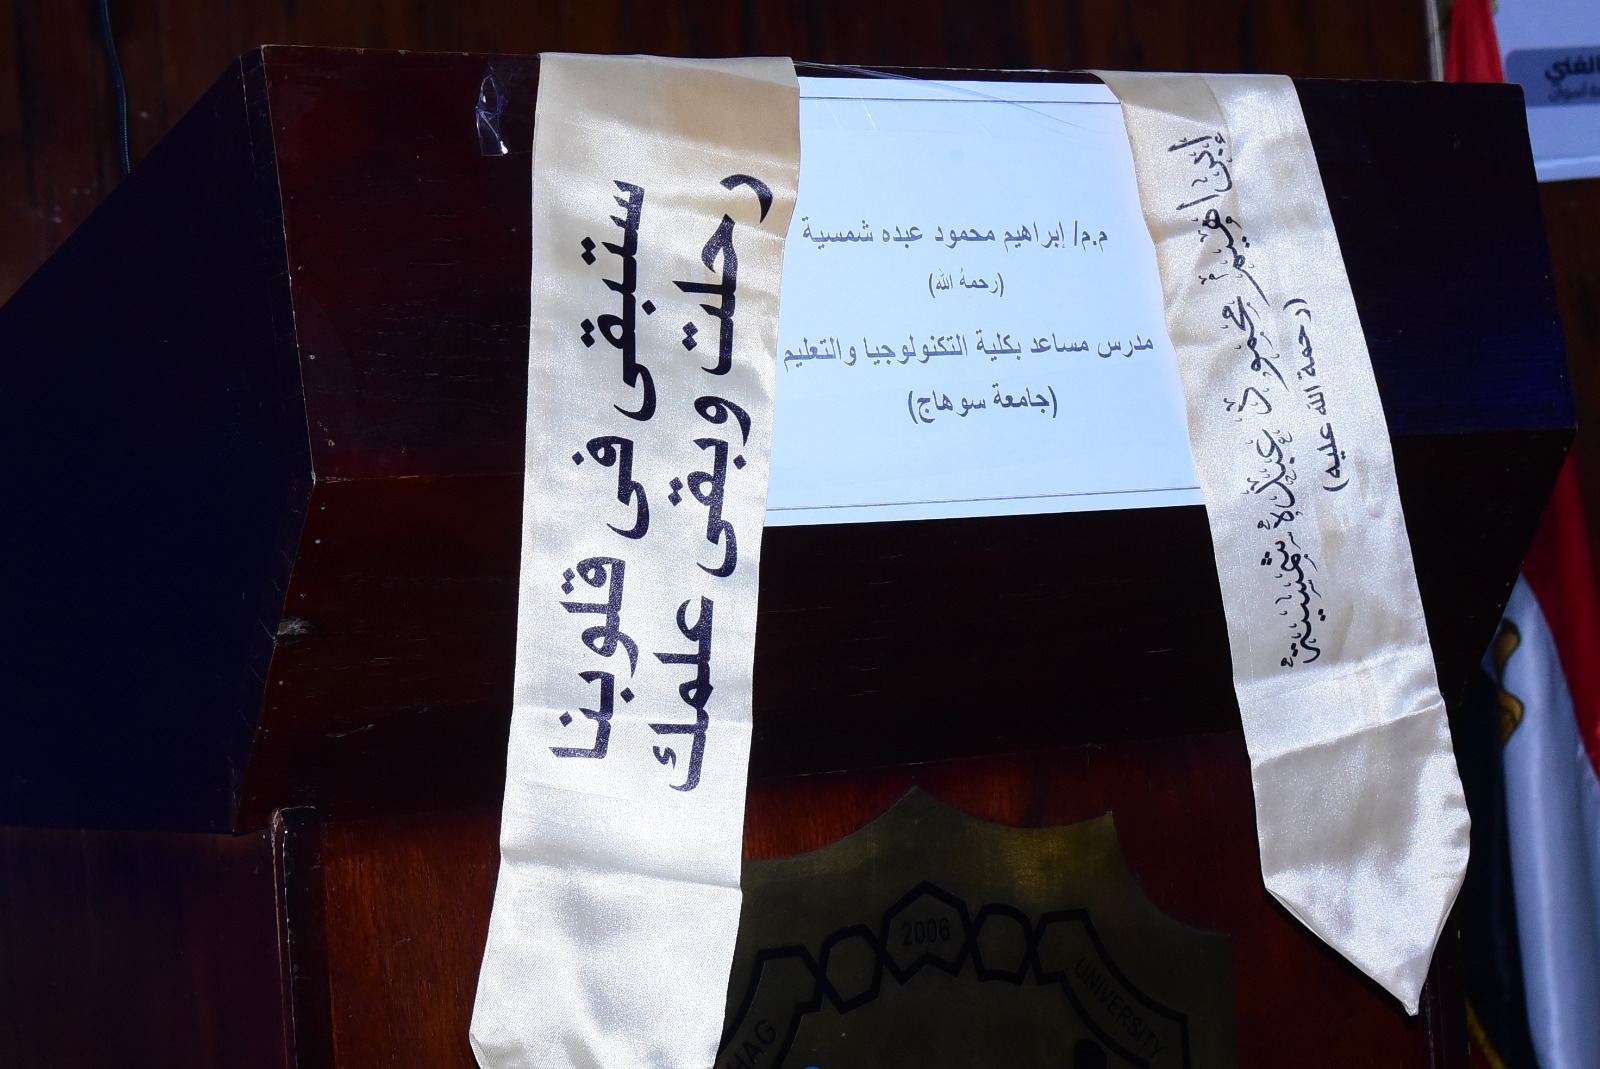 رحلت وبقى علمك
ستبقى فى قلوبنا
م.م/ إبراهيم محمود عبده شمسية
(رحمهُ الله)
مدرس مساعد بكلية التكنولوجيا والتعليم
(جامعة سوهاج)
إبراهيم محمود عبده شمسية
(رحمة الله عليه)
الفني
أسوان
2006
HAG
UNIVERSITY